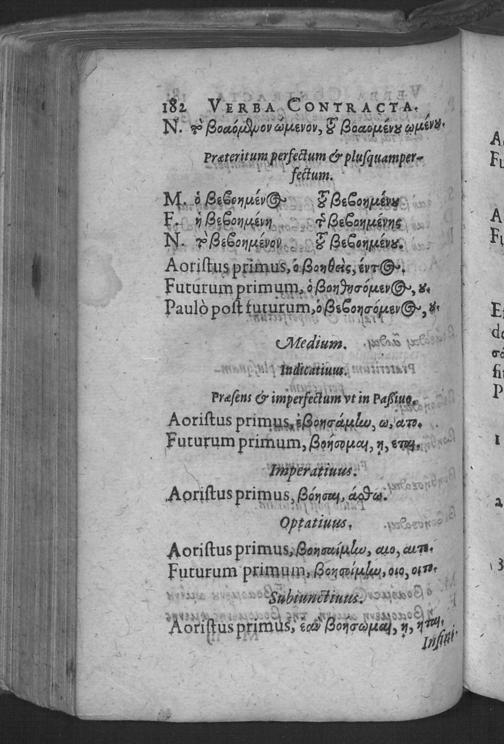 182 VERBA CONTRACTA.
N. τὸ βοαόμενον ώμενον, τοῦ βοαομένου ωμένου.
Præteritum perfectum & plusquamper-
fectum.
M. ὁ βεβοημένος τοῦ βεβοημένου
F. ἡ βεβοημένη τῆς βεβοημένης
N. τὸ βεβοημένον τοῦ βεβοημένου.
Aoristus primus, ὁ βοηθεὶς, έντος.
Futurum primum, ὁ βοηθησόμενος, ου.
Paulò post futurum, ὁ βεβοησόμενος, ου.
Medium.
Indicatiuus.
Præsens & imperfectum vt in Passiuo.
Aoristus primus, ἐβοησάμην, ω, ατο.
Futurum primum, βοήσομαι, η, εται.
Imperatiuus.
Aoristus primus, βόησαι, άσθω.
Optatiuus.
Aoristus primus, βοησαίμην, αιο, αιτο.
Futurum primum, βοησοίμην, οιο, οιτο.
Subiunctiuus.
Aoristus primus, ἐὰν βοήσωμαι, η, ηται.
Infini-